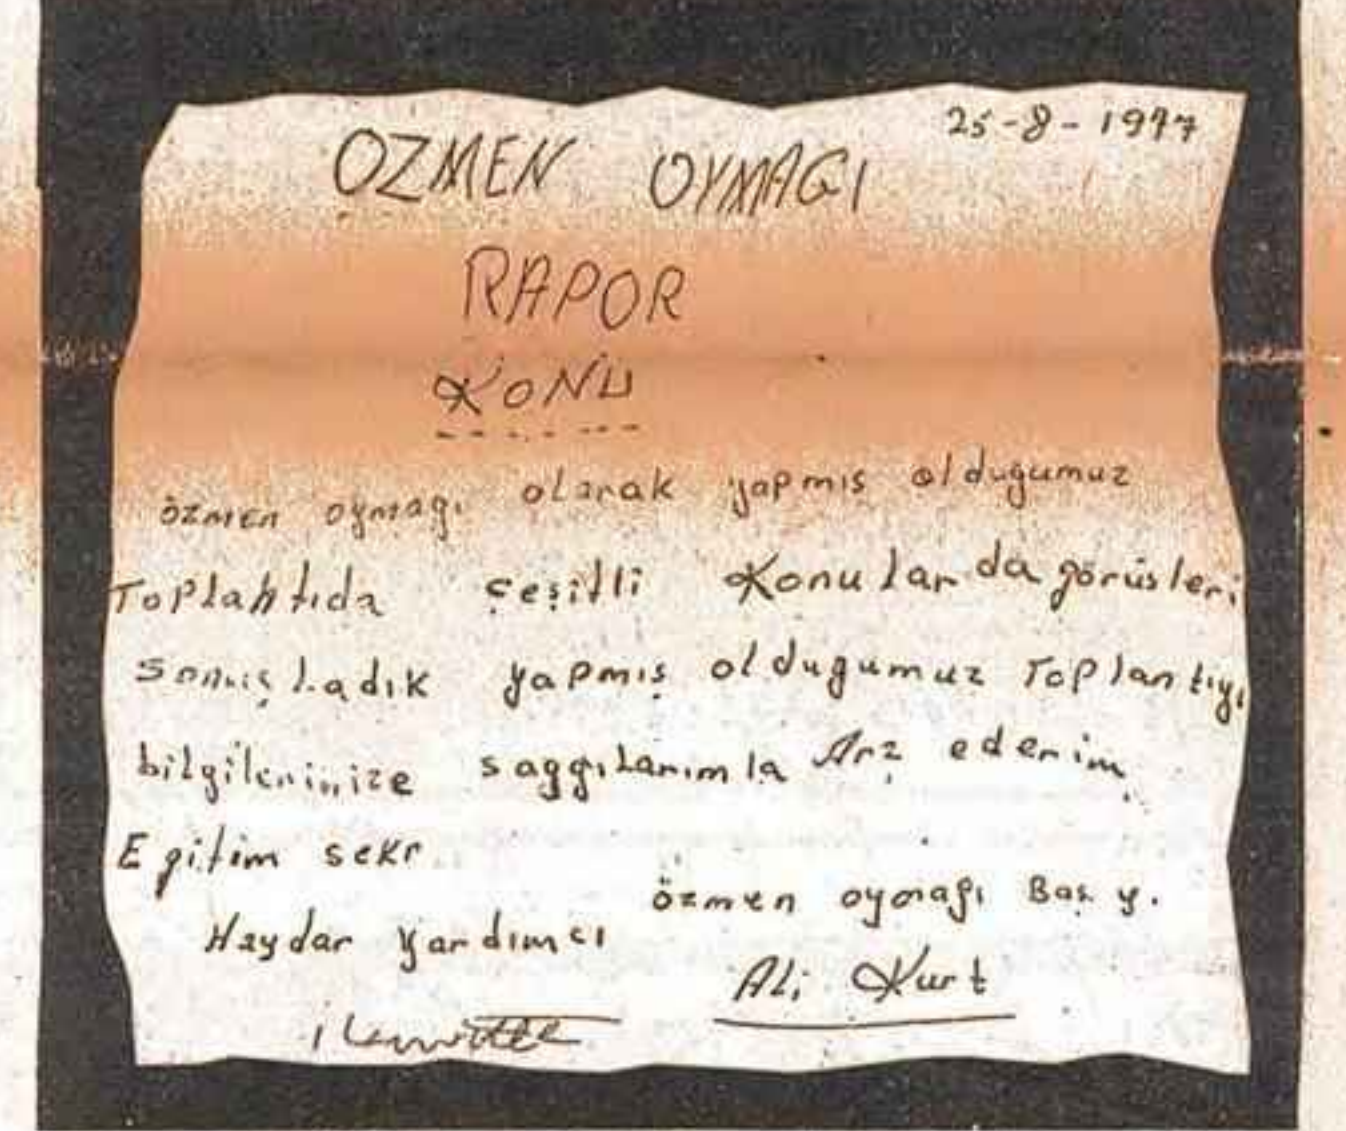 25-8-1977
OZMEN OYMAGI
RAPOR
KONU
özmen oymagı olarak yapmış oldugumuz
Toplantıda çeşitli Konularda görüsleri
yapmış oldugumuz Toplantıyı
bilgilerinize saygılarımla Arz ederim
Egitim sekr
özmen oymağı Baş y.
Haydar Yardımcı
Ali Kurt